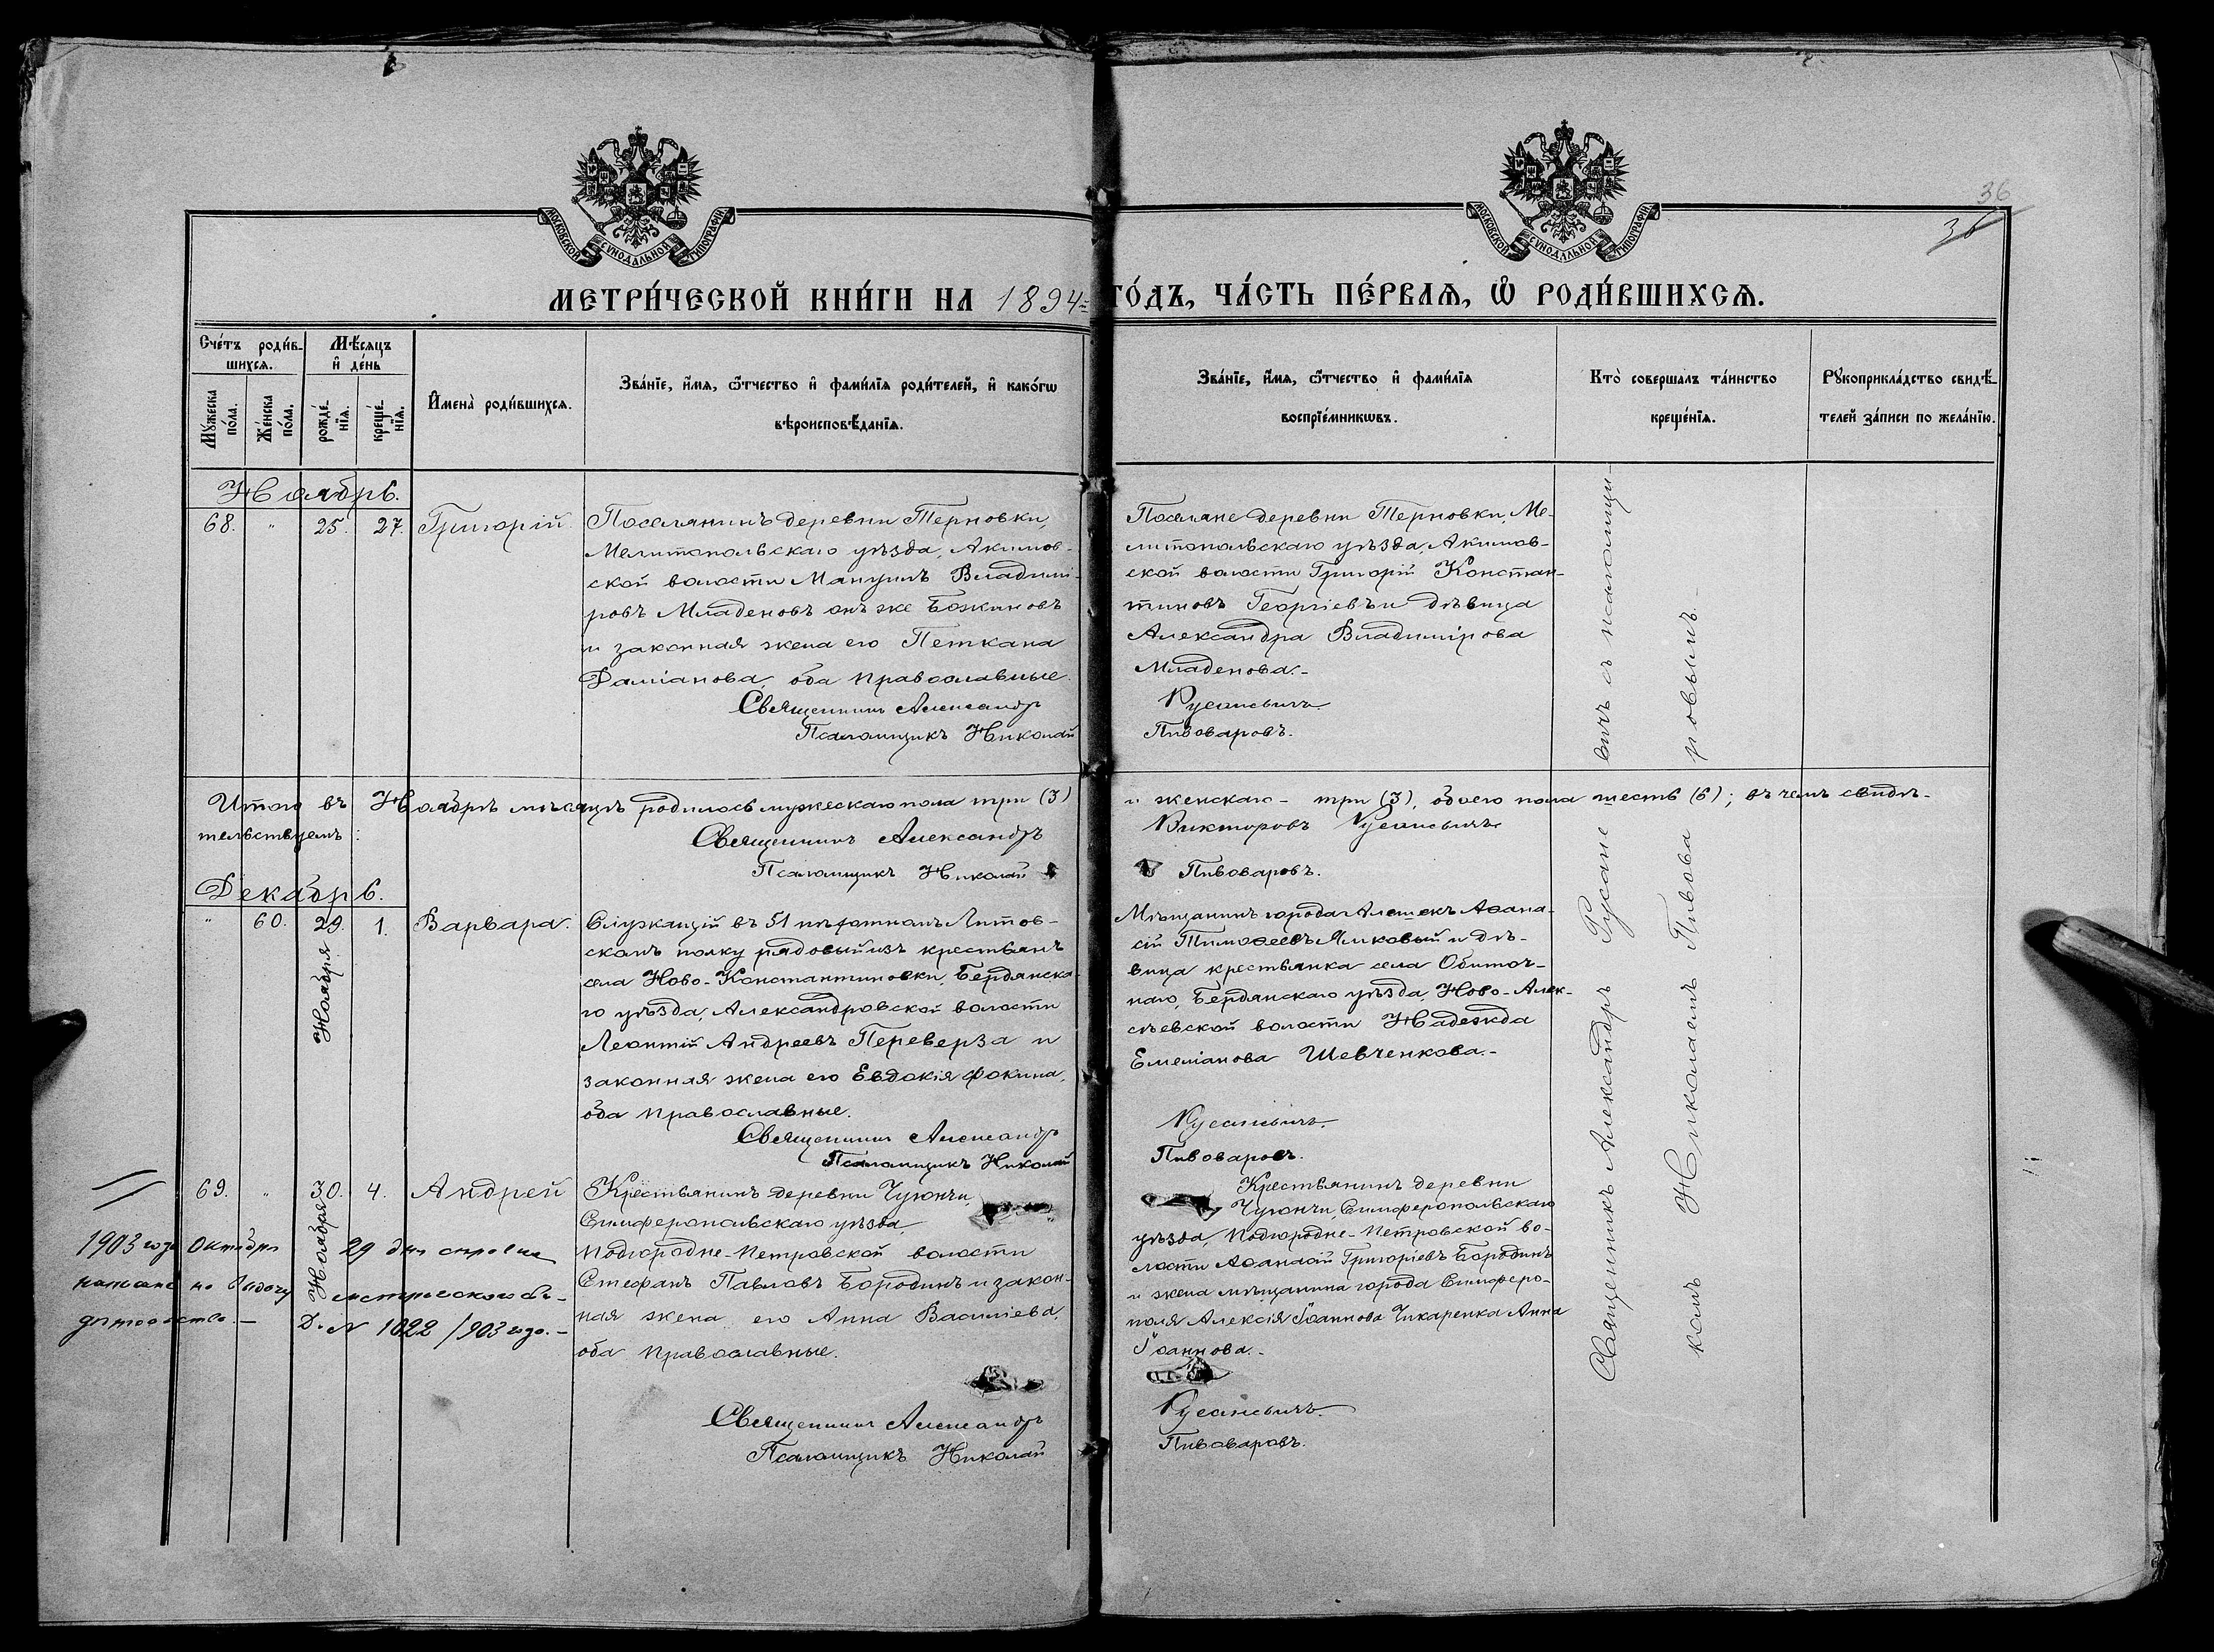 36
36
МОСКОВСКОЙ СѴНОДАЛЬНОЙ ТИПОГРАФІИ
МОСКОВСКОЙ СѴНОДАЛЬНОЙ ТИПОГРАФІИ
МЕТРИ́ЧЕСКОЙ КНИ́ГИ НА 1894 = ГО́ДЪ, ЧА́СТЬ ПЕ́РВАЯ, Ѡ РОДИ́ВШИХСЯ.
Сче́тъ роди́в-
шихся.
Мѣ́сяцъ
и҆ де́нь
Мꙋ́жеска по́ла.
Же́нска по́ла.
рожде́-
нїя.
креще́-
нїя.
И҆мена̀ роди́вшихся.
Зва́нїе, и҆́мя, ѻ҆́тчество и҆ фами́лїя роди́телей, и҆ како́гѡ
вѣроисповѣ́данїя.
Зва́нїе, и҆́мя, ѻ҆́тчество и҆ фами́лїя
воспрїе́мникѡвъ.
Кто̀ соверша́лъ та́инство
креще́нїя.
Рꙋкоприкла́дство свидѣ́-
телей за́писи по жела́нїю.
Ноябрь.
68. " 25. 27. Григорій.
Поселянинъ деревни Терновки,
Мелитопольскаго уѣзда, Акимов-
ской волости Манчулъ Владимі-
ровъ Младеновъ онъ же Божиновъ
и законная жена его Петкана
Даміанова, оба православные.
Священникъ Александръ
Псаломщикъ Николай
Поселяне деревни Терновки, Ме-
литопольскаго уѣзда, Акимов-
ской волости Григорій Констан-
тиновъ Георгіевъ и дѣвица
Александра Владимірова
Младенова.-
Русаневичъ.
Пивоваровъ.
Итого въ Ноябрѣ мѣсяцѣ родилось мужескаго пола три (3) и женскаго - три (3), обоего пола шесть (6); въ чемъ свидѣ-
тельствуемъ:
Священникъ Александръ Викторовъ Русаневичъ
Псаломщикъ Николай Пивоваровъ.
Декабрь.
" 60. 29. Ноября 1. Варвара.
Служащій въ 51 пѣхотномъ Литов-
скомъ полку рядовый изъ крестьянъ
села Ново-Константиновки, Бердянска-
го уѣзда, Александровской волости
Леонтій Андреевъ Переверза и
законная жена его Евдокія Фокина,
оба православные.
Священникъ Александръ
Псаломщикъ Николай
Мѣщанинъ города Алешекъ Аѳана-
сій Тимоѳеевъ Ямковый и дѣ-
вица крестьянка села Обиточ-
наго, Бердянскаго уѣзда, Ново-Алек-
сѣевской волости Надежда
Емеліанова Шевченкова.-
Русаневичъ.
Пивоваровъ.
69. " 30. Ноября 4. Андрей
Крестьянинъ деревни Чуюнчи,
Симферопольскаго уѣзда,
Подгородне-Петровской волости
Стефанъ Павловъ Бородинъ и закон-
ная жена его Анна Василіева,
оба православные.
Священникъ Александръ
Псаломщикъ Николай
Крестьянинъ деревни
Чуюнчи, Симферопольскаго
уѣзда, Подгородне-Петровской во-
лости Аѳанасій Григоріевъ Бородинъ
и жена мѣщанина города Симферо-
поля Алексія Іоаннова Чикаренка Анна
Іоаннова.-
Русаневичъ.
Пивоваровъ.
1903 года Октября 29 дня справка
на выдачу метрическаго сви-
дѣтельства.-
Д. № 1022/903 года.-
Священникъ Александръ Русане вичъ съ псаломщи-
комъ Николаемъ Пивова ровымъ.-